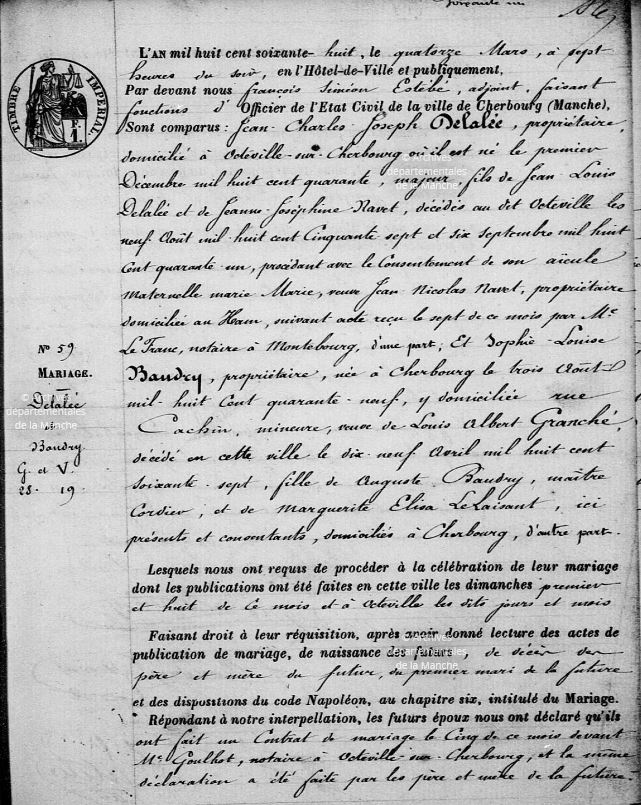 TIMBRE IMPERIAL
L'AN mil huit cent soixante-huit, le quatorze Mars, à sept
heures du soir, en l'Hôtel-de-Ville et publiquement,
Par devant nous françois Siméon Estébé, adjoint, faisant
fonctions d'Officier de l'Etat Civil de la ville de Cherbourg (Manche),
Sont comparus : Jean-Charles-Joseph Delalée, propriétaire,
domicilié à Octeville-sur-Cherbourg où il est né le premier
Décembre mil huit cent quarante, majeur, fils de Jean-Louis
Delalée et de Jeanne-Joséphine Navet, décédés au dit Octeville les
neuf Août mil-huit cent Cinquante sept et six septembre mil huit
Cent quarante-un, procédant avec le Consentement de son aïeule
maternelle marie Marie, veuve Jean-Nicolas Navet, propriétaire
domiciliée au Ham, suivant acte reçu le sept de ce mois par Me
Le Franc, notaire à Montebourg, d'une part; Et Sophie-Louise
Baudry, propriétaire, née à Cherbourg le trois Août
mil huit Cent quarante-neuf, y domiciliée rue
Cachin, mineure, veuve de Louis Albert Granché,
décédé en cette ville le dix-neuf Avril mil huit cent
soixante-sept, fille de Auguste Baudry, maître
Cordier, et de Marguerite Elisa LeLaisant, ici
présents et consentants, domiciliés à Cherbourg, d'autre part.
No 59
MARIAGE.
Delalée
et
Baudry
G. et V.
28. 19.
Lesquels nous ont requis de procéder à la célébration de leur mariage
dont les publications ont été faites en cette ville les dimanches premier
et huit de ce mois et à Octeville les dits jours et mois
Faisant droit à leur réquisition, après avoir donné lecture des actes de
publication de mariage, de naissance des futurs, de décès des
père et mère du futur, du premier mari de la future
et des dispositions du code Napoléon, au chapitre six, intitulé du Mariage.
Répondant à notre interpellation, les futurs époux nous ont déclaré qu'ils
ont fait un Contrat de mariage le Cinq de ce mois devant
Me Goulhot, notaire à Octeville-sur-Cherbourg, et la même
déclaration a été faite par les père et mère de la future.
© Archives
départementales
de la Manche
© Archives
départementales
de la Manche
© Archives
départementales
de la Manche